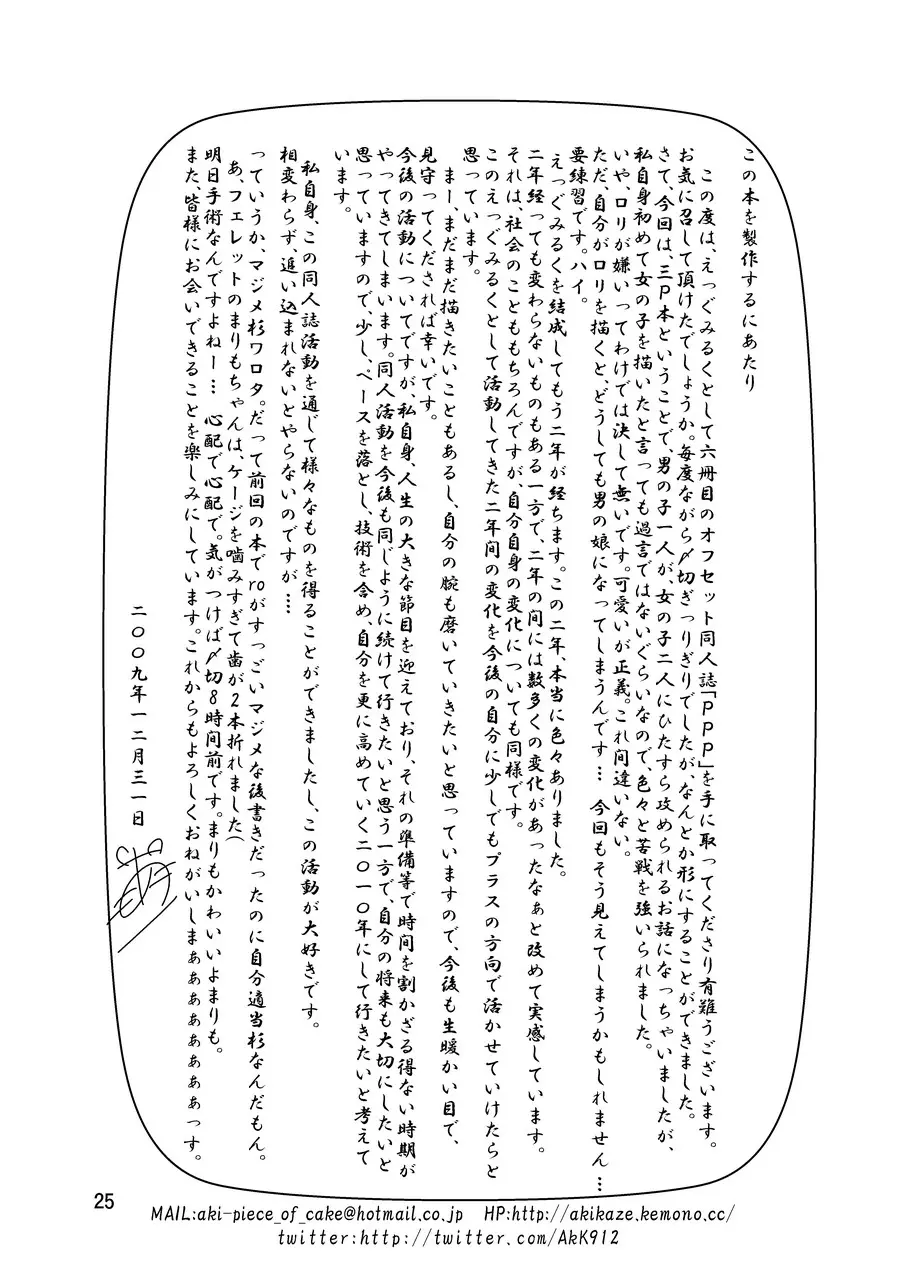 この本を製作するにあたり
この度は、えっぐみるくとして六冊目のオフセット同人誌「PPP」を手に取ってくださり有難うございます。
お気に召して頂けたでしょうか。毎度ながら〆切ぎっりぎりでしたが、なんとか形にすることができました。
さて、今回は、三P本ということで、男の子一人が、女の子二人にひたすら攻められるお話になっちゃいましたが、
私自身初めて女の子を描いたと言っても過言ではないぐらいなので、色々と苦戦を強いられました。
いや、ロリが嫌いってわけでは決して無いです。可愛いが正義。これ間違いない。
ただ、自分がロリを描くと、どうしても男の娘になってしまうんです… 今回もそう見えてしまうかもしれません…
要練習です。ハイ。
えっぐみるくを結成してもう二年が経ちます。この二年、本当に色々ありました。
二年経っても変わらないものもある一方で、二年の間には数多くの変化があったなぁと改めて実感しています。
それは、社会のことももちろんですが、自分自身の変化についても同様です。
このえっぐみるくとして活動してきた二年間の変化を今後の自分に少しでもプラスの方向で活かせていけたらと
思っています。
まー、まだまだ描きたいこともあるし、自分の腕も磨いていきたいと思っていますので、今後も生暖かい目で、
見守ってくだされば幸いです。
今後の活動についてですが、私自身、人生の大きな節目を迎えており、それの準備等で時間を割かざる得ない時期が
やってきてしまいます。同人活動を今後も同じように続けて行きたいと思う一方で、自分の将来も大切にしたいと
思っていますので、少し、ペースを落とし、技術を含め、自分を更に高めていく二〇一〇年にして行きたいと考えて
います。
私自身、この同人誌活動を通じて様々なものを得ることができましたし、この活動が大好きです。
相変わらず、追い込まれないとやらないのですが…。
っていうか、マジメ杉ワロタ。だって前回の本でroがすっごいマジメな後書きだったのに自分適当杉なんだもん。
あ、フェレットのまりもちゃんは、ケージを噛みすぎて歯が2本折れました(
明日手術なんですよねー… 心配で心配で。気がつけば〆切8時間前です。まりもかわいいよまりも。
また、皆様にお会いできることを楽しみにしています。これからもよろしくおねがいしまぁぁぁぁぁぁぁぁっす。
二〇〇九年一二月三一日
25
MAIL:aki-piece_of_cake@hotmail.co.jp HP:http://akikaze.kemono.cc/
twitter:http://twitter.com/AkK912